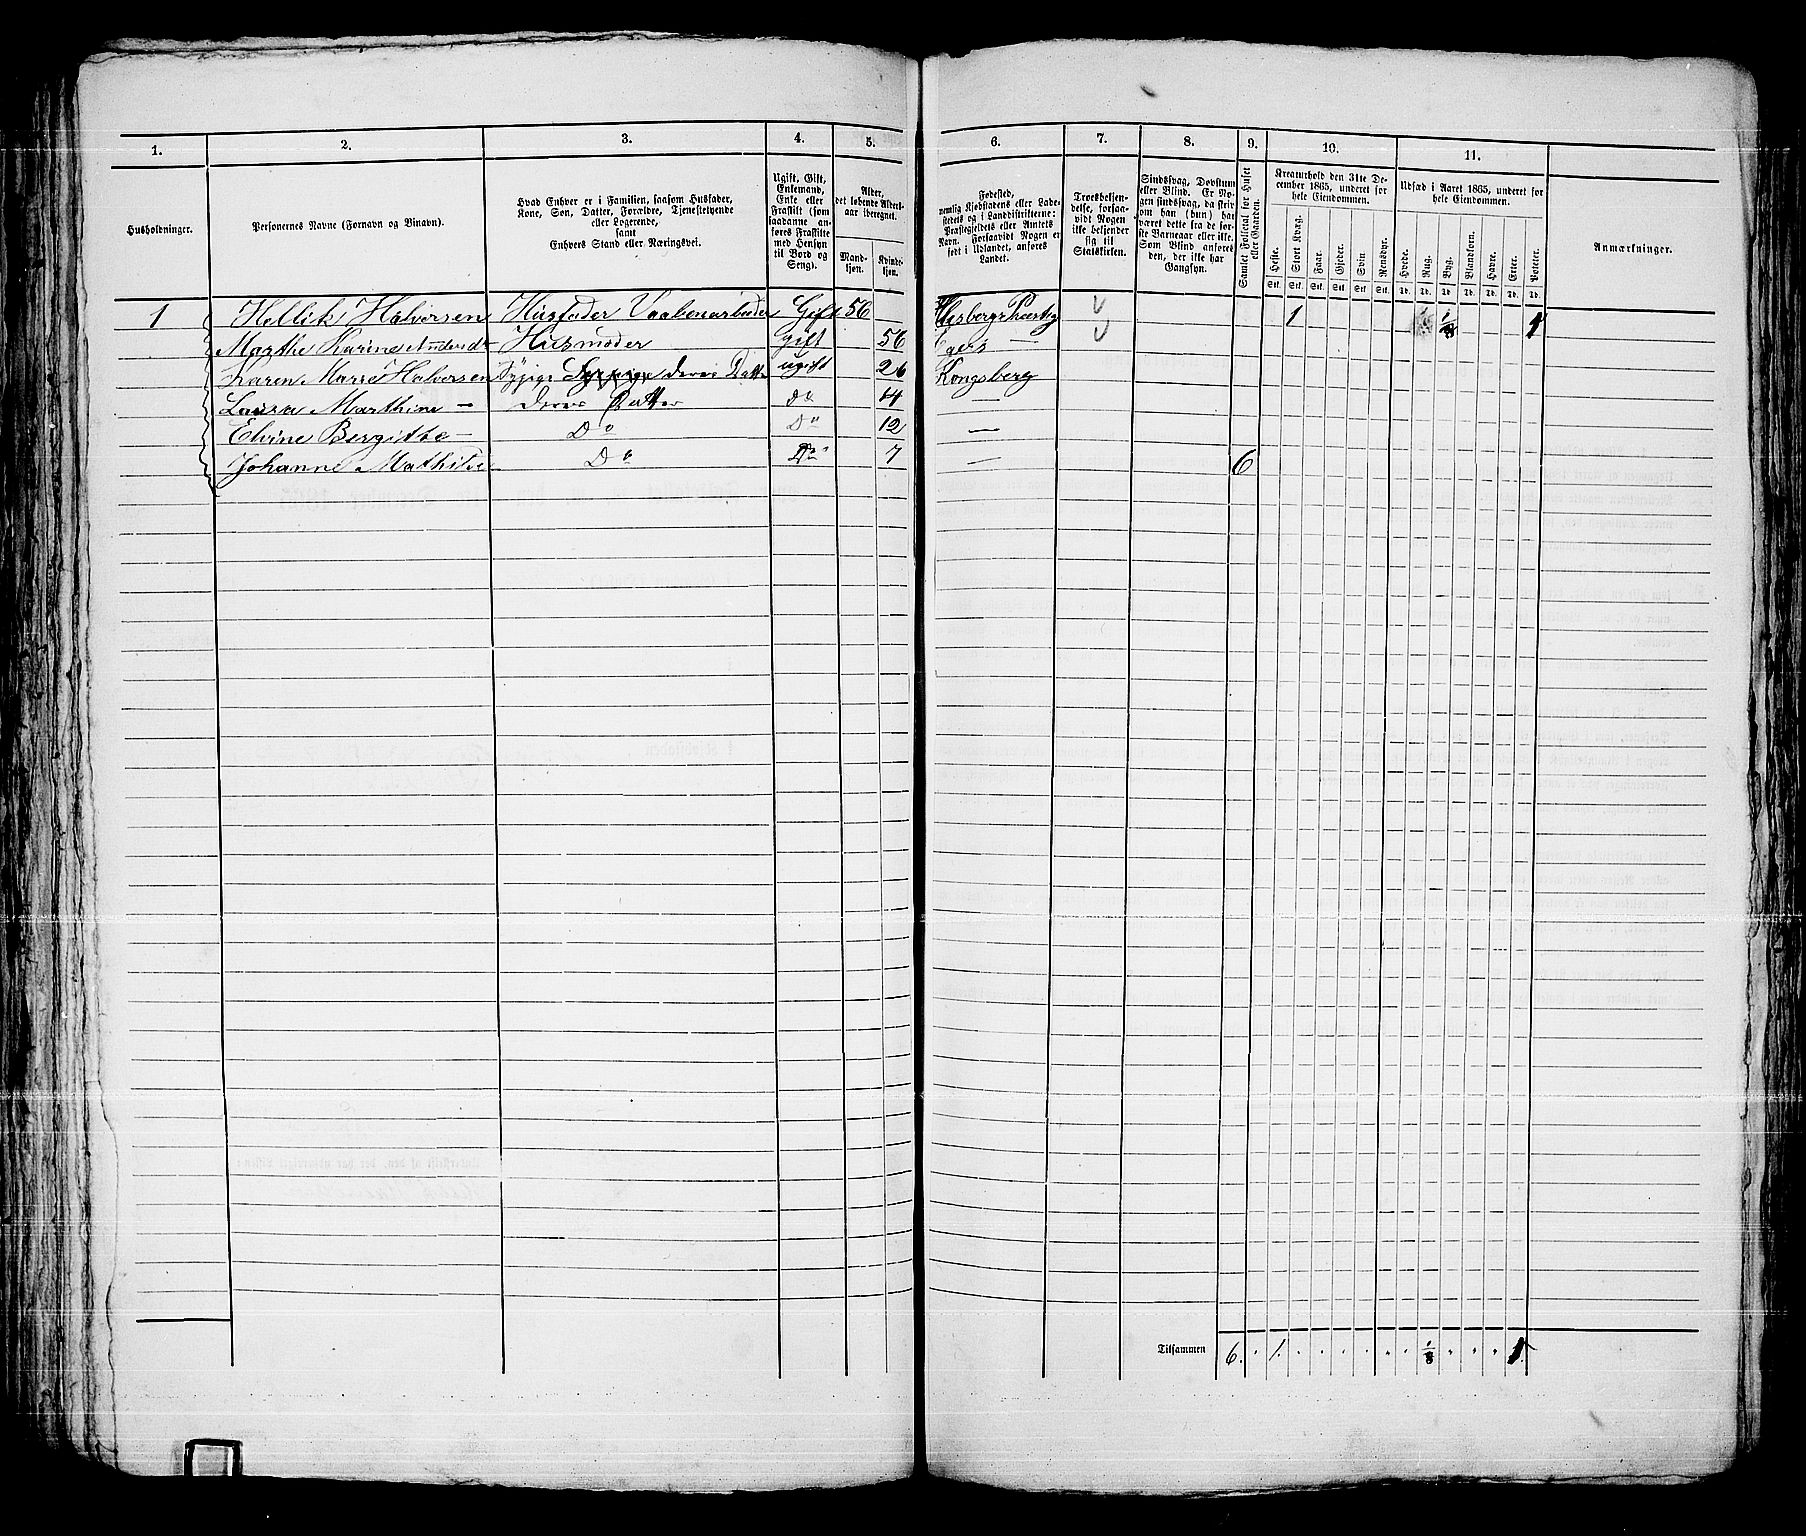 1. 2. 3. 4. 5. 6. 7. 8. 9. 10. 11.
Husholdninger.
Personernes Navne (Fornavn og Binavn).
Hvad Enhver er i Familien, saasom Husfader,
Kone, Søn, Datter, Forældre, Tjenestetyende
eller Logerende,
samt
Enhvers Stand eller Næringsvei.
Ugift, Gift,
Enkemand,
Enke eller
Fraskilt (som
saadanne an-
føres Fraskilte
med Hensyn
til Bord og
Seng).
Alder,
det løbende Alders-
aar iberegnet.
Mand-
kjøn.
Kvinde-
kjøn.
Fødested,
nemlig Kjøbstadens eller Lade-
stedets og i Landdistrikterne:
Præstegjeldets eller Amtets
Navn. Forsaavidt Nogen er
født i Udlandet, anføres
Landet.
Troesbekjen-
delse, forsaa-
vidt Nogen
ikke bekjender
sig til
Statskirken.
Sindssvag, Døvstum
eller Blind. Er No-
gen sindssvag, da skriv
om han (hun) har
været dette fra de før-
ste Barneaar eller ikke.
Som Blind anføres
den, der ikke har
Gangsyn.
Samlet Folketal for Huset
eller Gaarden.
Kreaturhold den 31te De-
cember 1865, underet for
hele Eiendommen.
Heste. Stort Kvæg. Faar. Gjeder. Svin. Rensdyr.
Stk. Stk. Stk. Stk. Stk. Stk.
Udsæd i Aaret 1865, underet for
hele Eiendommen.
Hvede. Rug. Byg. Blandkorn. Havre. Erter. Poteter.
Td. Td. Td. Td. Td. Td. Td.
Anmærkninger.
1 Hellik Halversen Husfader Vaabenarbeider Gift 56 1 1/8 1
Marthe Karine Husmoder Gift 56 Egers —
Karen Marie Halversen Sypige deres Datter ugift 26 Kongsberg
Laura Marthine — deres Datter Do 14 —
Elvine Bergitte — Do Do 12 —
Johanne Mathilde Do Do 7 — 6
Tilsammen 6. " 1. " " " " " " 1/8 " " " 1.